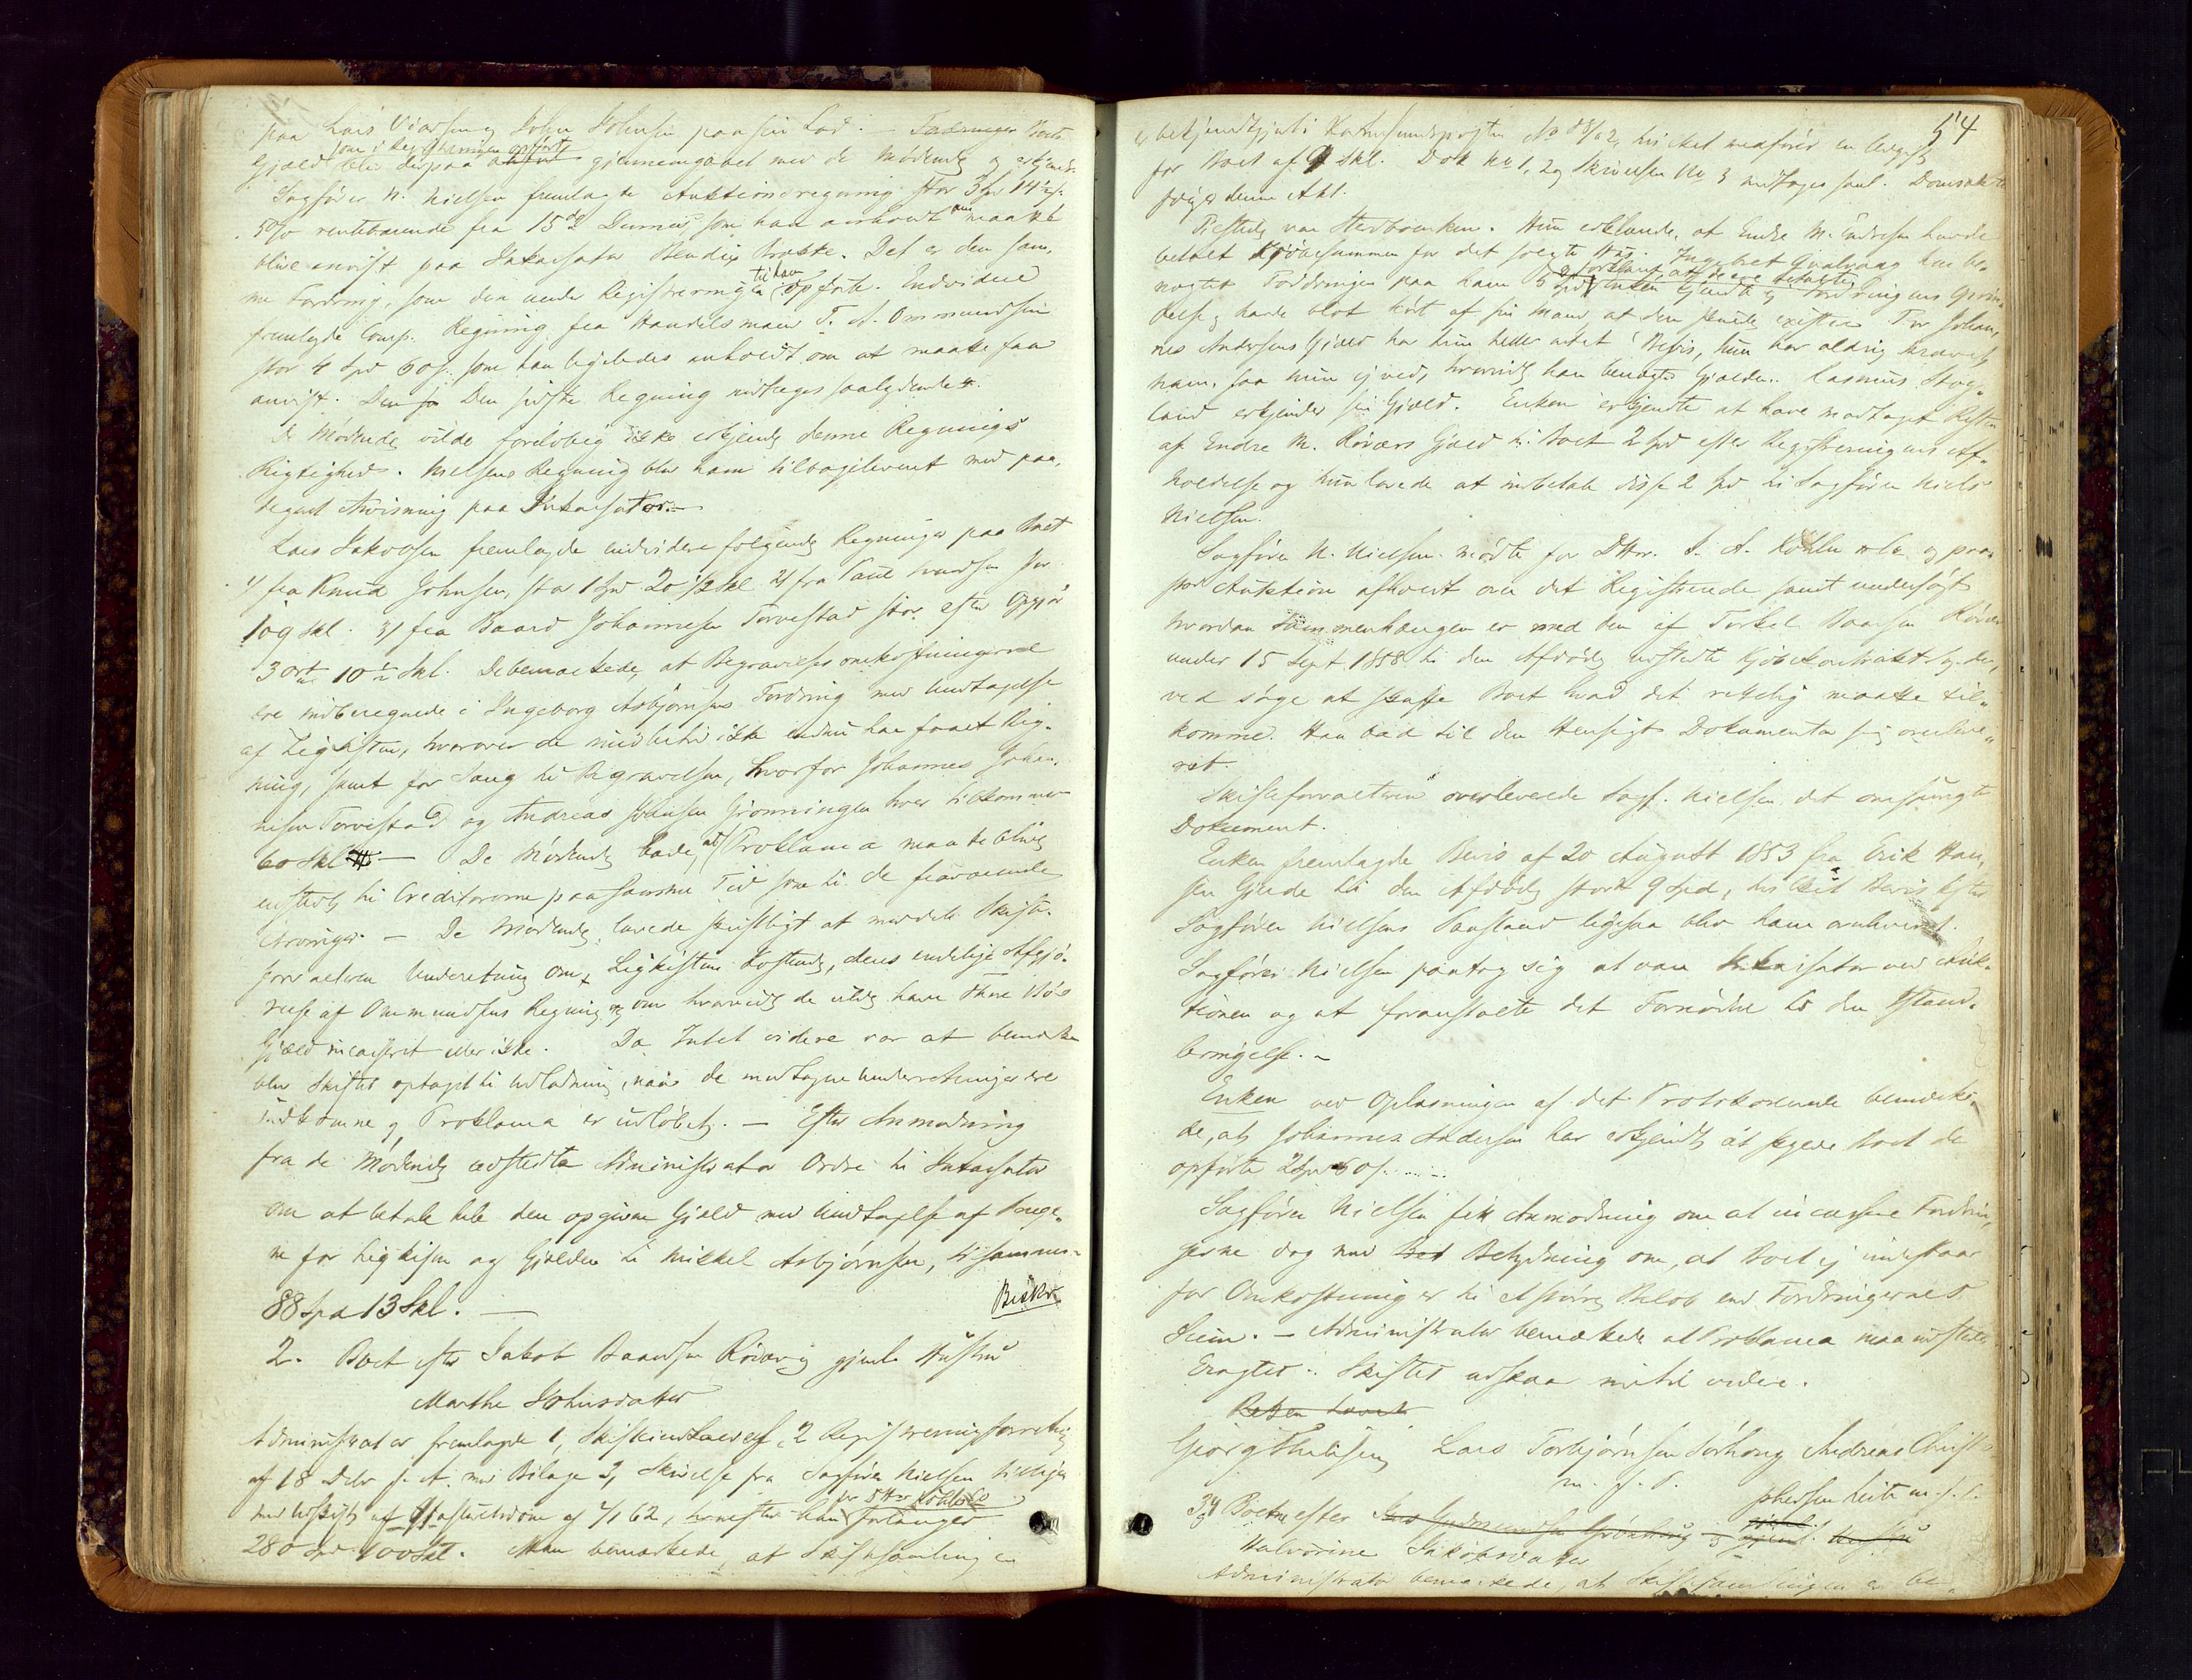 paa Lars Viarsen og John Johnsen paa sin Lod. — Boets
som i Registreringen opført
Gjæld blev derpaa gjennemgaaet med de Mødende og erkjendt.
Sagfører N. Nielsen fremlagde Auktionsregning stor 3 Spd 14½ s.
5% rentebærende fra 15de Dennes, som han anholdt om maatte
blive anvist paa Inkassator Bendix Brekke. Det er den sam-
me Fordring, som den under Registreringen til ham opførte. Endvidere
fremlagde Comp. Regning fra Handelsmand T. A. Ommundsen
stor 4 Spd 60 s. som han ligeledes anholdt om at maatte faa
anvist. Den sidste Regning modtages saalydende.
De Mødende vilde foreløbig ikke erkjende denne Regnings
Rigtighed. Nielsens Regning blev ham tilbageleveret med paa-
tegnet Anvisning paa Inkassator. —
Lars Jakobsen fremlagde endvidere følgende Regninger paa Boet
1/ fra Knud Johnsen, stor 1 Spd 20½ Skl 2/ fra Paul stor
109 Skl. 3/ fra Baard Johannesen Torvestad stor efter Opgjør
3 ort 10½ Skl. De bemærkede, at Begravelsesomkostningerne
ere indberegnede i Ingeborg Asbjørnsens Fordring med Undtagelse
af Ligkisten, hvorover de imidlertid ikke endnu har faaet Reg-
ning, samt for Sang til Begravelsen, hvorfor Johannes Johan-
nesen Torvestad og Andreas Johnsen Grønningen hver tilkommer
60 Skl — De Mødende bad, at Proklama maatte blive
udstedt til Creditorerne paa samme Tid som til de fraværende
Arvinger. — De Mødende lovede skriftligt at meddele Skifte-
forvalteren Underretning om Ligkistens Kostende, deres endelige Afgjø-
relse af Ommundsens Regning og om hvorvidt de vilde have
Gjæld incasseret eller ikke. Da Intet videre var at bemærke
blev Skiftet optaget til Udlodning, naar de modtagne Underretninger ere
indkomne og Proklama er udløbet. — Efter Anmodning
fra de Mødende udstedte Administrator Ordre til Inkassator
om at betale hele den opgivne Gjæld med Undtagelse af Penge-
ne for Ligkisten og Gjælden til Mikkel Asbjørnsen, tilsammen
88 Spd 13 Skl. —
2. Boet efter Jakob Baardsen Røvær og gjenl. Hustru
Marthe Johnsdatter
Administrator fremlagde 1, Skifteindkaldelse, 2 Registreringsforretning
af 18 Debr f. A. med Bilage 3, Skrivelse fra Sagfører Nielsen tilligemed
med Udskrift af Gjæsteretsdom af 7/1 62, hvorefter han for DHrr Köhler & Co forlanger
280 Spd 100 Skl. Man bemærkede, at Skiftesamling er
54
bekjendtgjort i Karmsundsposten No 88/62, hvilket medførte en Udgift
for Boet af 9 Skl. Dok No 1, 2 og Skrivelsen No 3 modtages saml. Domsakten
følger denne Akt.
Tilstede var Sterbøenken. Hun erklærede, at Endre M. Endresen havde
betalt Kjøbesummen for det solgte Hus. Ingebret Qvalvaag har be-
nægtet Fordringen paa ham 5 Spd og forklaret, at den er betalt; Enken kjendte ej Fordringens Oprin-
delse og havde blot hørt af sin Mand, at den skulde existere. For Johan-
nes Andersens Gjæld har hun heller intet Bevis, hun har aldrig krævet
ham, saa hun ej ved, hvorvidt han benægter Gjælden. Rasmus Stog-
land erkjender sin Gjæld. Enken erkjendte at have modtaget Resten
af Endre M. Røværs Gjæld til Boet 2 Spd efter Registreringens Af-
holdelse og hun lovede at indbetale disse 2 Spd til Sagfører Niels
Nielsen.
Sagfører N. Nielsen mødte for DHrr. J. A. Köhler & Co og paa-
stod Auktion afholdt over det Registrerede samt undersøgt
hvordan sammenhængen er med den af Torkel Baardsen Røvær
under 15 Sept 1858 til den Afdøde udstedte Kjøbekontrakt og der-
ved søge at skaffe Boet hvad det rettelig maatte til-
komme. Han bad til den Hensigt Dokumentet sig overleve-
ret.
Skifteforvalteren overleverede Sagf. Nielsen det omspurgte
Dokument.
Enken fremlagde Bevis af 20 August 1853 fra Erik Han-
sen Gjerde til den Afdøde stort 9 Spd, hvilket Bevis efter
Sagfører Nielsens Paastand ligesaa blev ham overleveret.
Sagfører Nielsen paatog sig at være Inkassator ved Auk-
tionen og at foranstalte det Fornødne til den Istand-
bringelse. —
Enken ved Oplæsningen af det Protokollerede bemærke-
de, at Johannes Andersen har erkjendt at skylde Boet de
opførte 2 Spd 60 s. . . . . .
Sagfører Nielsen fik Anmodning om at incassere Fordrin-
gerne dog med Betydning om, at Boet ej indestaar
for Omkostninger til større Beløb end Fordringernes
Sum. — Administrator bemærkede at Proklama maa udstedes
Eragtet: Skiftet udstaar indtil videre.
Georg Thulesen Lars Torbjørnsen Sørhoug Andreas Christ-
m. f. P. phersen Leite m. f. P.
3. Boet efter Lars Gudmundsen Grønhoug og gjenl. Hustru
Halvorine Jakobsdatter
Administrator bemærkede, at Skiftesamlingen er be-